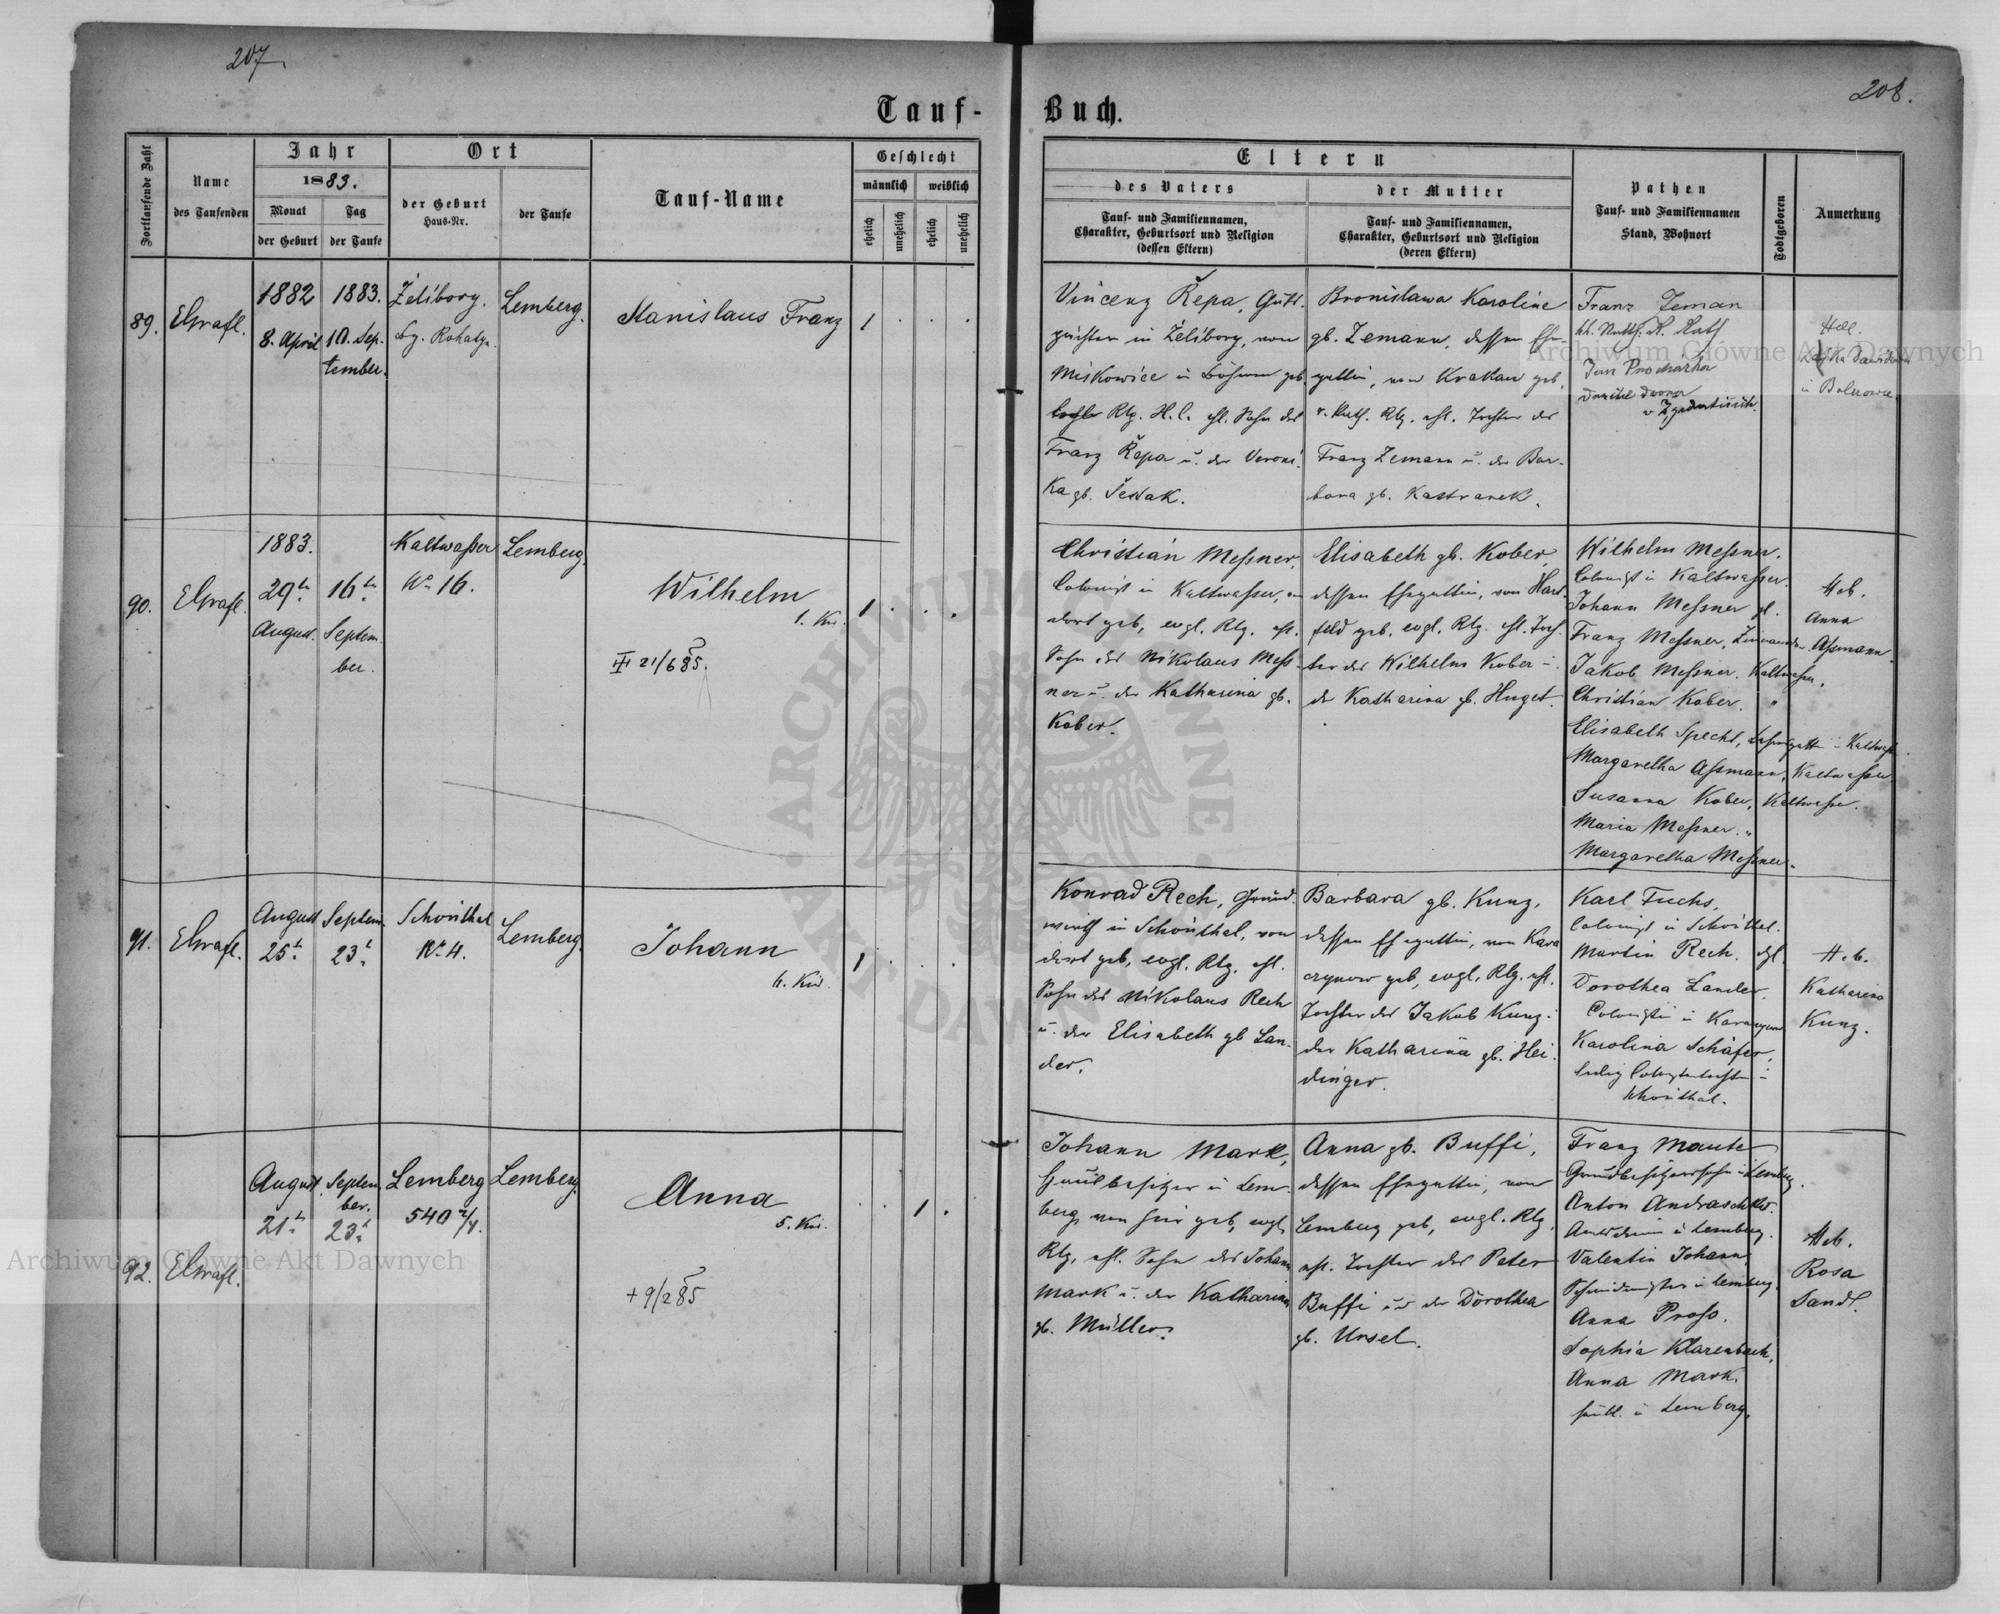 207.
208.
Tauf-
Buch.
Fortlaufende Zahl
Name
des Taufenden
Jahr
1883.
Monat
der Geburt
Tag
der Taufe
Ort
der Geburt
Haus-Nr.
der Taufe
Tauf-Name
Geschlecht
männlich
weiblich
ehelich
unehelich
ehelich
unehelich
Eltern
des Vaters
Tauf- und Familiennamen,
Charakter, Geburtsort und Religion
(dessen Eltern)
der Mutter
Tauf- und Familiennamen,
Charakter, Geburtsort und Religion
(deren Eltern)
Pathen
Tauf- und Familiennamen
Stand, Wohnort
Todtgeboren
Anmerkung
89.
1882
8. April
1883.
10. Sep-
tember.
Żelibory.
Lemberg.
Stanislaus Franz
1
Vincenz Řepa, Guts-
pächter in Żelibory, von
Miskowice in Böhmen geb.
Rlg. H. C. ehl. Sohn des
Franz Řepa u. der Veroni-
ka gb.
Bronislawa Karoline
gb. Zemann, dessen Ehe-
gattin, von Krakau geb.
Rlg. ehl. Tochter des
Franz Zemann u. der Bar-
bara gb.
Franz Zeman
Jan Prochazka
90.
1883.
29te
August.
16te
Septem-
ber.
Kaltwaßer
No 16.
Lemberg.
Wilhelm
1. Kd.
21/6 85.
1
Christian Meßner,
Colonist in Kaltwaßer, von
dort geb, evgl. Rlg. ehl.
Sohn des Nikolaus Meß-
ner u. der Katharina gb.
Kober.
Elisabeth gb. Kober,
dessen Ehegattin, von Hart-
feld geb, evgl. Rlg. ehl. Toch-
ter des Wilhelm Kober u.
der Katharina gb. Huget.
Wilhelm Meßner.
Colonist in Kaltwaßer.
Johann Meßner
Franz Meßner,
Jakob Meßner. Kaltwaßer.
Christian Kober. "
Elisabeth Specht,
Margaretha Aßmann, Kaltwaßer.
Susanna Kober, Kaltwaßer.
Maria Meßner. "
Margaretha Meßner.
Heb.
Anna
Aßmann.
91.
August
25t.
Septem.
23t.
Schönthal
No 4.
Lemberg.
Johann
4. Kd.
1
Konrad Rech, Grund-
wirth in Schönthal, von
dort geb, evgl. Rlg. ehl.
Sohn des Nikolaus Rech
u. der Elisabeth gb Lan-
der.
Barbara gb. Kunz,
dessen Ehegattin, von Kara-
czynow geb, evgl. Rlg. ehl.
Tochter des Jakob Kunz u.
der Katharina gb. Hei-
dinger.
Karl Fuchs,
Colonist in Schönthal.
Martin Rech.
Dorothea Lander.
Colonistin in
Karolina Schäfer,
Schönthal.
Heb.
Katharina
Kunz.
92.
August
21t.
Septem-
ber.
23t.
Lemberg
540 2/4.
Lemberg.
Anna
5. Kd.
+ 9/2 85
1
Johann Mark,
Hausbesitzer in Lem-
berg, von hier geb, evgl.
Rlg, ehl. Sohn des Johann
Mark u. der Katharina
gb. Müller.
Anna gb. Buffi,
dessen Ehegattin, von
Lemberg geb, evgl. Rlg,
ehl. Tochter des Peter
Buffi u der Dorothea
gb. Ursel.
Franz Mauter
Grundbesitzerssohn in Lemberg.
Anton
Valentin Johann,
Anna Proß.
Sophia Klarenbach,
Anna Mark,
in Lemberg.
Heb.
Rosa
Sandl.
Archiwum Główne Akt Dawnych
Archiwum Główne Akt Dawnych
ARCHIWUM GŁÓWNE AKT DAWNYCH